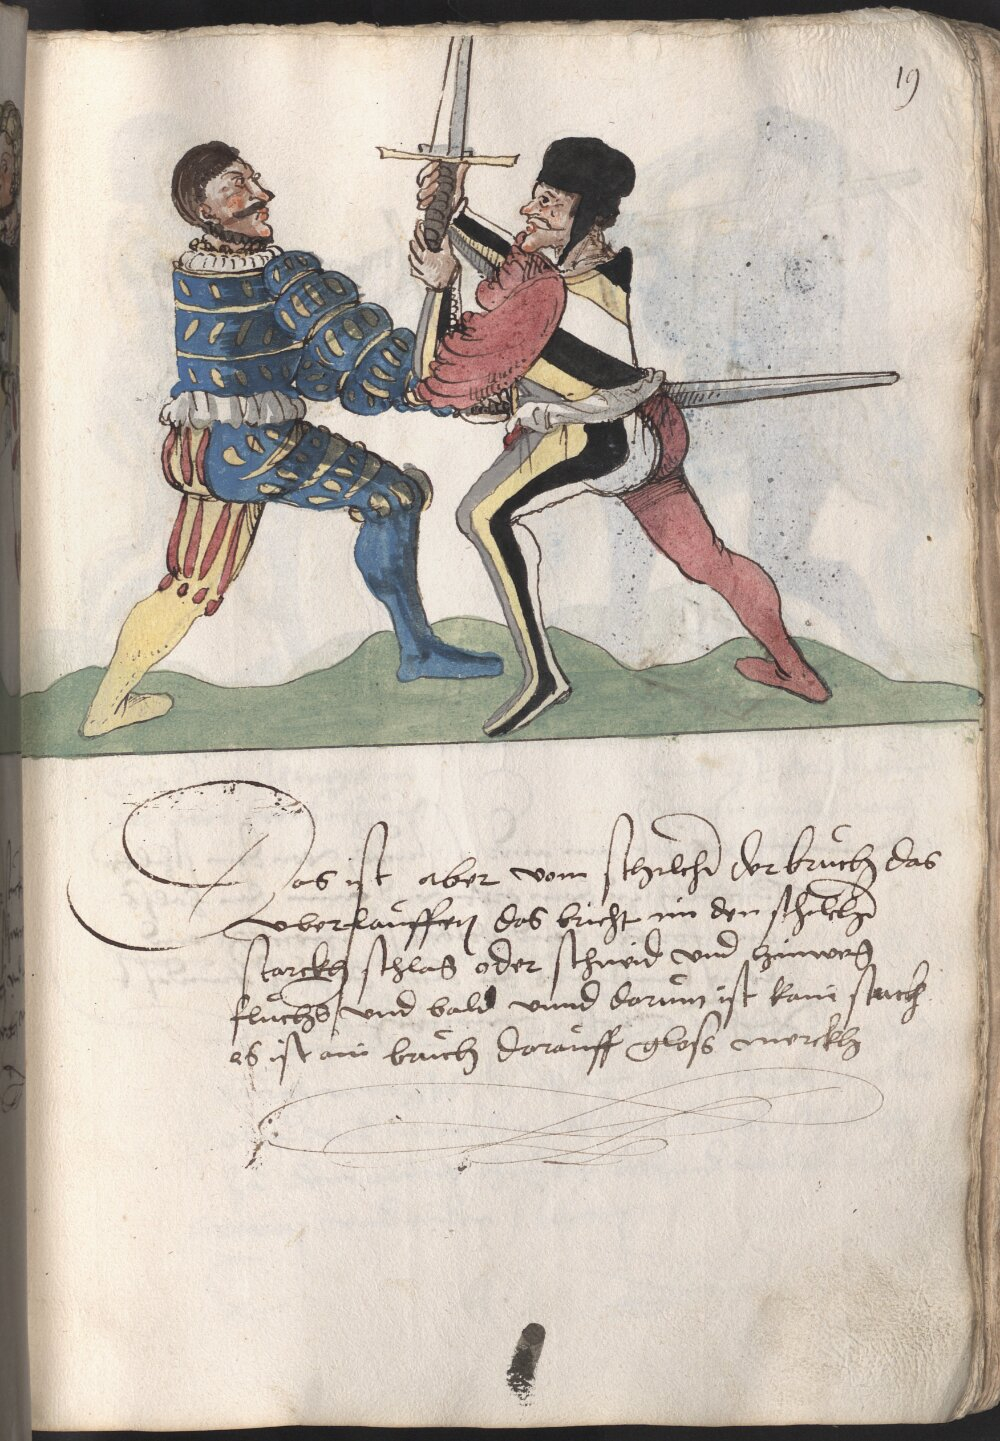 19
Das ist aber vom schilchē der bruch das
vberlauffen das bricht im den schilchē
starckh schlag oder schneid vnd hinweg
fluchs vnd bald vnnd darum ist kain
es ist ain bruch darauff gloss merckh